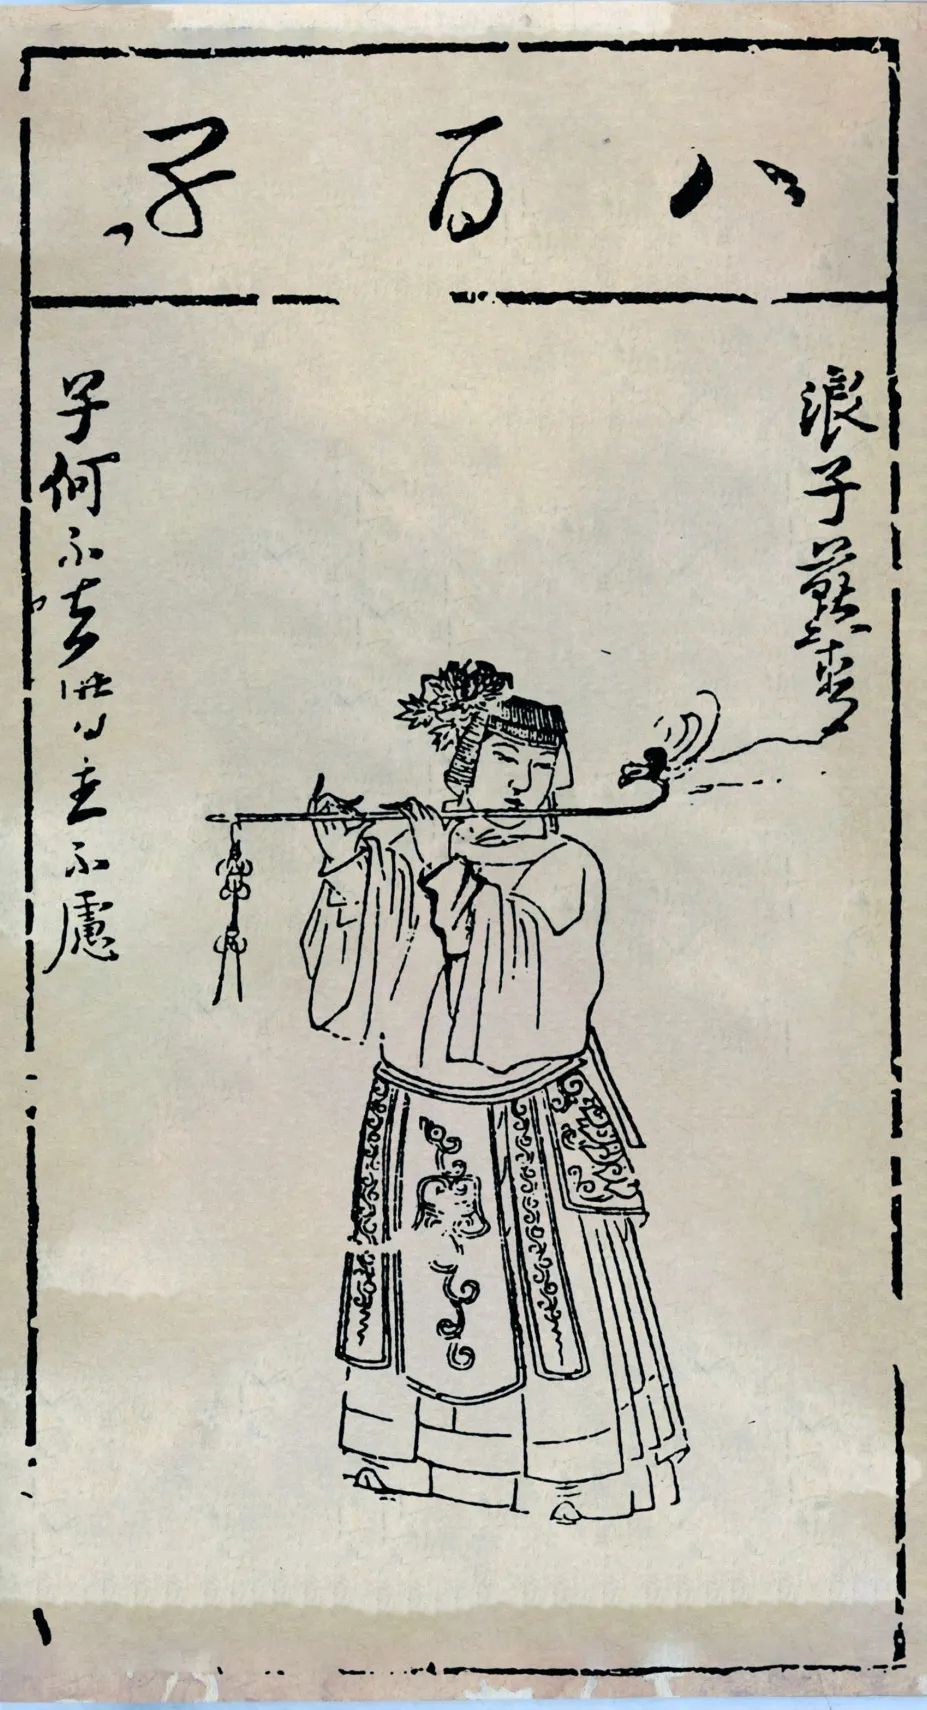 八百子
浪子燕青
子何不去主不慮